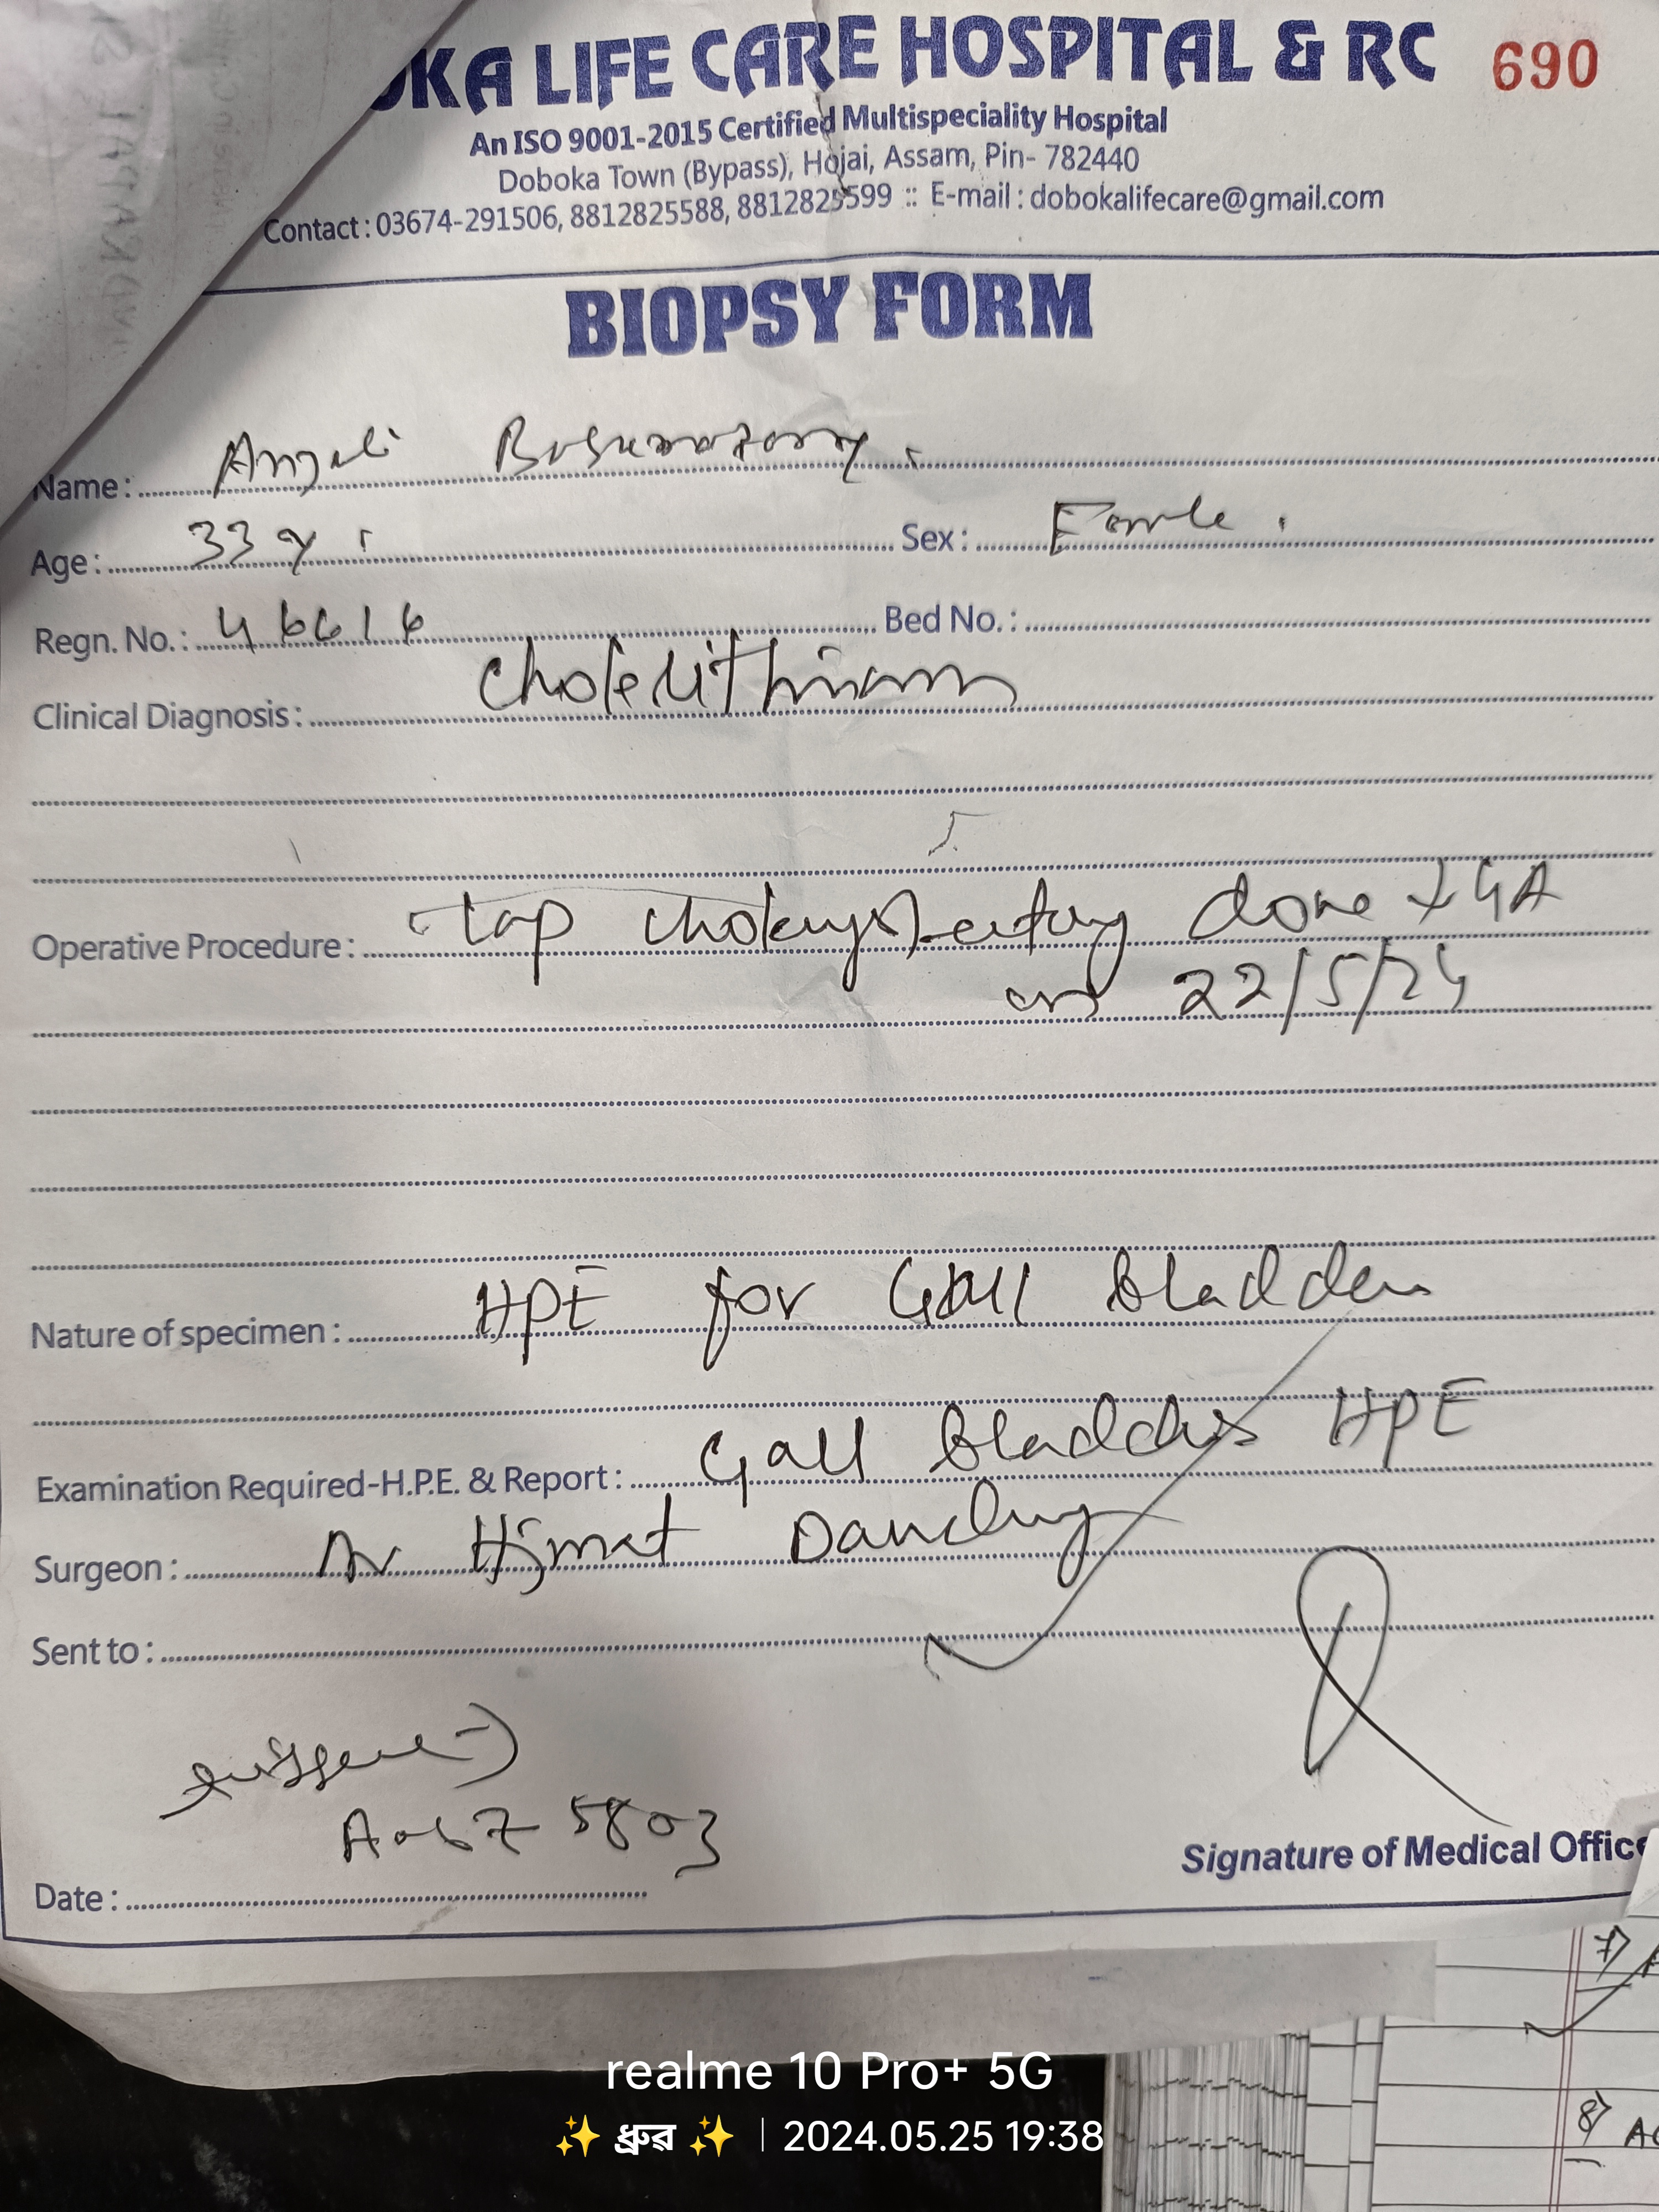 OKA LIFE CARE HOSPITAL & RC 690
An ISO 9001-2015 Certified Multispeciality Hospital
Doboka Town (Bypass), Hojai, Assam, Pin- 782440
Contact : 03674-291506, 8812825588, 8812825599 :: E-mail : dobokalifecare@gmail.com
BIOPSY FORM
Name : Anjali
Age : 33 y Sex : Female
Regn. No. : 46616 Bed No. :
Clinical Diagnosis :
Operative Procedure : Lap done GA
on 22/5/24
Nature of specimen : HPE for Gall bladder
Examination Required-H.P.E. & Report : Gall bladder HPE
Surgeon : Dr
Sent to :
5803
Date :
Signature of Medical Office
7)
8)
realme 10 Pro+ 5G
✨ ধ্ৰুৱ ✨ | 2024.05.25 19:38